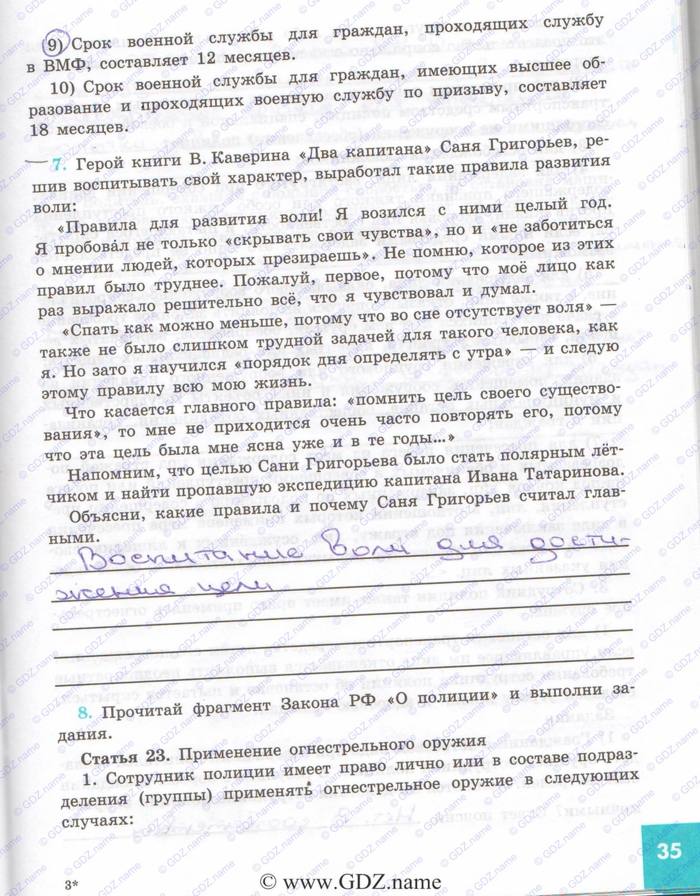 9) Срок военной службы для граждан, проходящих службу
в ВМФ, составляет 12 месяцев.
10) Срок военной службы для граждан, имеющих высшее об-
разование и проходящих военную службу по призыву, составляет
18 месяцев.
7. Герой книги В. Каверина «Два капитана» Саня Григорьев, ре-
шив воспитывать свой характер, выработал такие правила развития
воли:
«Правила для развития воли! Я возился с ними целый год.
Я пробовал не только «скрывать свои чувства», но и «не заботиться
о мнении людей, которых презираешь». Не помню, которое из этих
правил было труднее. Пожалуй, первое, потому что моё лицо как
раз выражало решительно всё, что я чувствовал и думал.
«Спать как можно меньше, потому что во сне отсутствует воля» —
также не было слишком трудной задачей для такого человека, как
я. Но зато я научился «порядок дня определять с утра» — и следую
этому правилу всю мою жизнь.
Что касается главного правила: «помнить цель своего существо-
вания», то мне не приходится очень часто повторять его, потому
что эта цель была мне ясна уже и в те годы...»
Напомним, что целью Сани Григорьева было стать полярным лёт-
чиком и найти пропавшую экспедицию капитана Ивана Татаринова.
Объясни, какие правила и почему Саня Григорьев считал глав-
ными.
Воспитание воли для дости-
жения цели
8. Прочитай фрагмент Закона РФ «О полиции» и выполни за-
дания.
Статья 23. Применение огнестрельного оружия
1. Сотрудник полиции имеет право лично или в составе подраз-
деления (группы) применять огнестрельное оружие в следующих
случаях:
35
3*
© www.GDZ.name